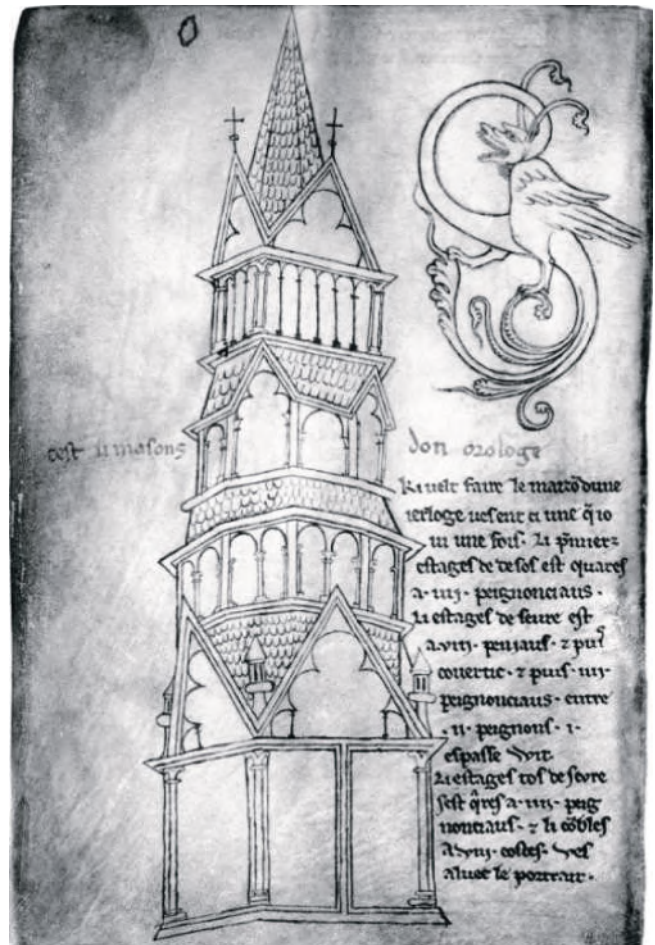 cest li masons don orologe
Ki velt faire le maizō dune
ierloge ves ent ci une q̄ io
vi une fois. Li p̄mierz
estages de desos est quares
a .iiii. peignonciaus.
Li estages de seure est
a .viii. peniaus. z puis
covertic. z puis .iiii.
peignonciaus. entre
.ii. peignons .i.
espasse wit.
Li estages tos de seure
sest q̄res a .iiii. peig
nonciaus. z li cōbles
a .viii. costes. ves
aluec le portrait.